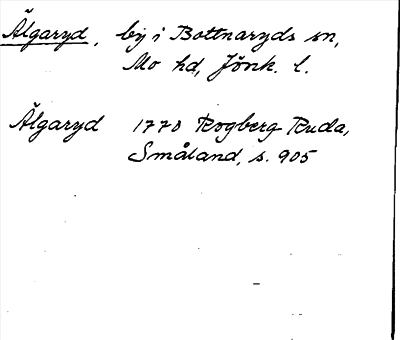 Älgaryd, by i Bottnaryds sn,
Mo hd, Jönk. l.
Älgaryd 1770 Rogberg Ruda,
Småland, s. 905